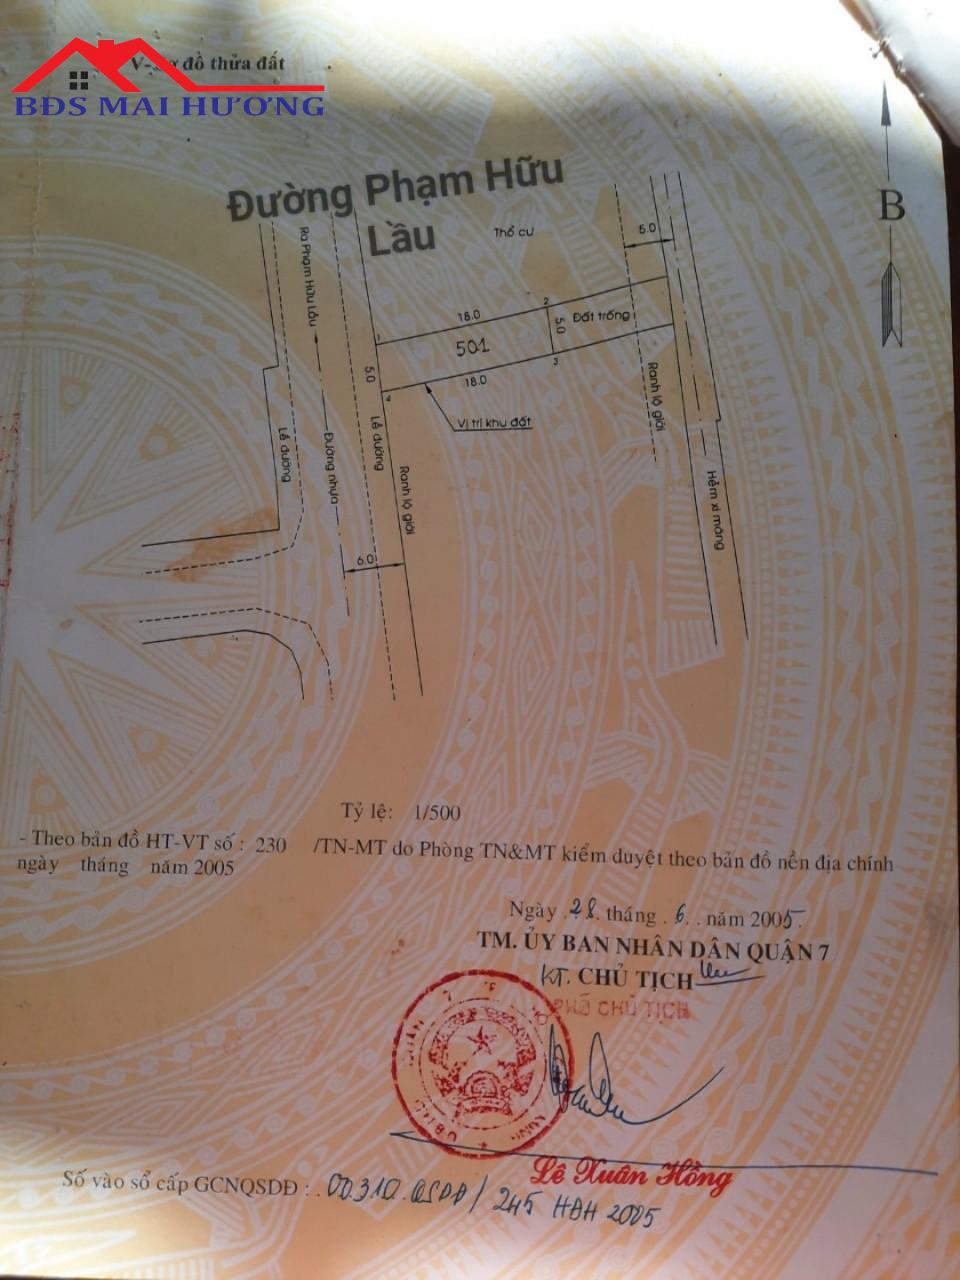 BĐS MAI HƯƠNG
đồ thửa đất
Đường Phạm Hữu
Lầu
B
Thổ cư
5.0
Ra Phạm Hữu Lầu
18.0
2
Đất trống
1
501
5.0
5.0
18.0
3
4
Vị trí khu đất
Lề đường
Đường nhựa
Lề đường
Ranh lộ giới
Ranh lộ giới
Hẻm xi măng
6.0
Tỷ lệ: 1/500
- Theo bản đồ HT-VT số : 230 /TN-MT do Phòng TN&MT kiểm duyệt theo bản đồ nền địa chính
ngày tháng năm 2005
Ngày .28. tháng . 6. . năm 2005.
TM. ỦY BAN NHÂN DÂN QUẬN 7
KT. CHỦ TỊCH
PHÓ CHỦ TỊCH
Lê Xuân Hồng
Số vào sổ cấp GCNQSDĐ : . 00310.QSDĐ / 245 HĐH 2005